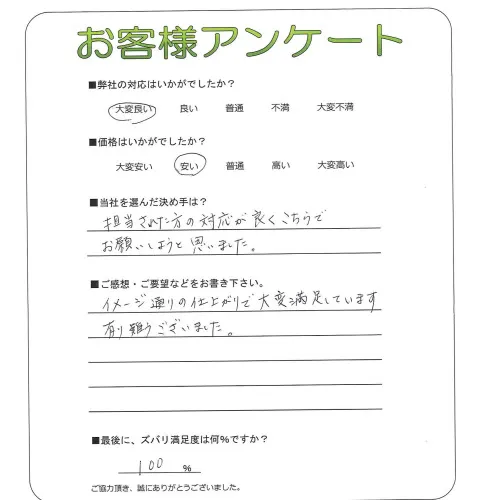 お客様アンケート
■弊社の対応はいかがでしたか？
大変良い 良い 普通 不満 大変不満
■価格はいかがでしたか？
大変安い 安い 普通 高い 大変高い
■当社を選んだ決め手は？
担当された方の対応が良くこちらで
お願いしようと思いました。
■ご感想・ご要望などをお書き下さい。
イメージ通りの仕上がりで大変満足しています
有り難うございました。
■最後に、ズバリ満足度は何%ですか？
100 %
ご協力頂き、誠にありがとうございました。